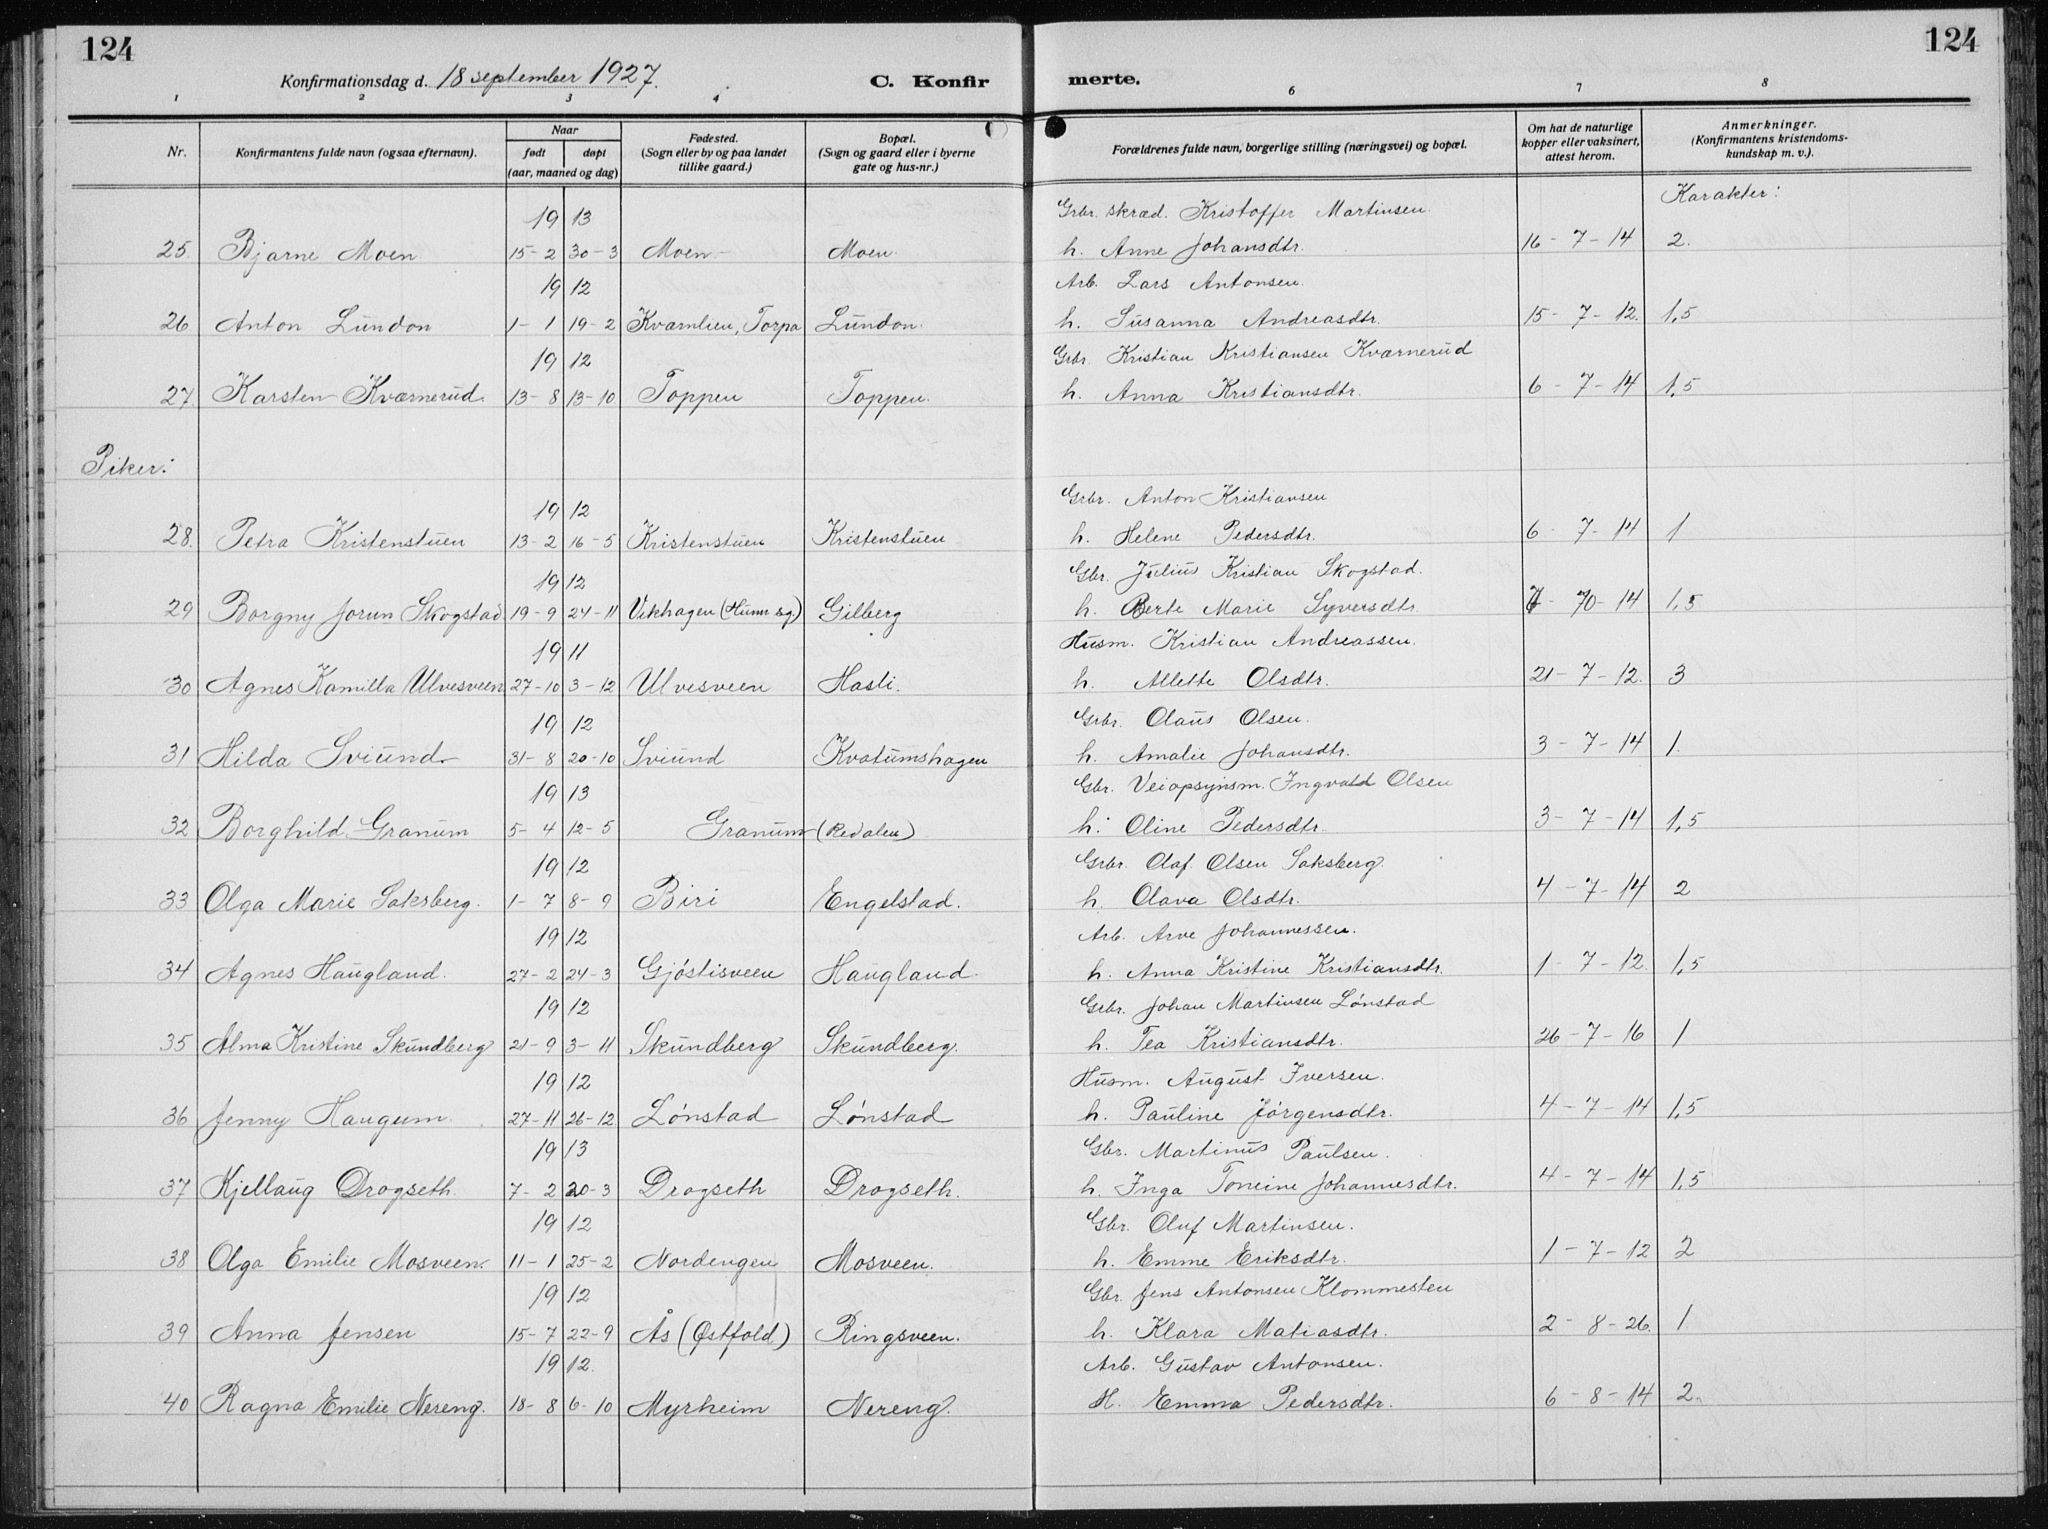 124
124
Konfirmationsdag d. 18 september 1927.
C. Konfir
merte.
1 2 3 4 6 7 8
Nr.
Konfirmantens fulde navn (ogsaa efternavn).
Naar
født døpt
(aar, maaned og dag)
Fødested.
(Sogn eller by og paa landet
tillike gaard.)
Bopæl.
(Sogn og gaard eller i byerne
gate og hus-nr.)
Forældrenes fulde navn, borgerlige stilling (næringsvei) og bopæl.
Om hat de naturlige
kopper eller vaksinert,
attest herom.
Anmerkninger.
(Konfirmantens kristendoms-
kundskap m. v.).
Karakter:
19 13 Grbr. skræd. Kristoffer Martinsen
25. Bjarne Moen 15-2 30-3 Moen Moen h. Anne Johansdtr. 16-7-14 2.
19 12 Arb. Lars Antonsen.
26 Anton Lundon 1-1 19-2 Kvamlien, Torpa Lundon. h. Susanna Andreasdtr. 15-7-12. 1,5
19 12 Grbr. Kristian Kristiansen Kværnerud
27. Karsten Kværnerud. 13-8 13-10 Toppen Toppen. h. Anna Kristiansdtr. 6-7-14 1,5
Piker:
19 12 Grbr. Anton Kristiansen
28. Petra Kristenstuen 13-2 16-5 Kristenstuen Kristenstuen h. Helene Pedersdtr. 6-7-14 1
19 12 Gbr. Julius Kristian Skogstad.
29 Borgny Jorun Skogstad 19-9 24-11 Vikhagen (Hunn sg.) Gilberg h. Berte Marie Syversdtr. 10-14 1,5
19 11 Husm. Kristian Andreassen.
30 Agnes Kamilla Ulvesveen 27-10 3-12 Ulvesveen Hasli. h. Allette Olsdtr. 21-7-12. 3
19 12 Grbr. Olaus Olsen.
31 Hilda Sviund 31-8 20-10 Sviund Kvatumshagen h. Amalie Johansdtr. 3-7-14 1.
19 13 Gbr. Veiopsynsm. Ingvald Olsen
32 Borghild Granum 5-4 12-5 Granum (Redalen) h. Oline Pedersdtr. 3-7-14 1,5
19 12 Grbr. Olaf Olsen Saksberg
33 Olga Marie Saksberg. 1-7 8-9 Biri Engelstad. h. Olava Olsdtr. 4-7-14 2
19 12 Arb. Arve Johannessen.
34 Agnes Haugland. 27-2 24-3 Gjøstisveen Haugland. h. Anna Kristine Kristiansdtr. 1-7-12. 1,5
19 12 Grbr. Johan Martinsen Lønstad
35 Alma Kristine Skundberg 21-9 3-11 Skundberg Skundberg. h. Tea Kristiansdtr. 26-7-16 1
19 12 Husm. August Iversen.
36 Jenny Haugum. 27-11 26-12 Lønstad Lønstad h. Pauline Jørgensdtr. 4-7-14 1,5
19 13 Gbr. Martinus Paulsen.
37 Kjellaug Drogseth 7-2 20-3 Drogseth Drogseth. h. Inga Toneine Johannesdtr. 4-7-14 1,5
19 12 Gbr. Oluf Martinsen.
38 Olga Emilie Mosveen. 11-1 25-2 Nordengen Mosveen. h. Emme Eriksdtr. 1-7-12 2
19 12 Gbr. Jens Antonsen Klommesten
39 Anna Jensen 15-7 22-9 Ås (Østfold) Ringsveen. h. Klara Matiasdtr. 2-8-26. 1
19 12. Arb. Gustav Antonsen.
40 Ragna Emilie Nereng. 18-8 6-10 Myrheim Nereng. H. Emma Pedersdtr. 6-8-14 2.